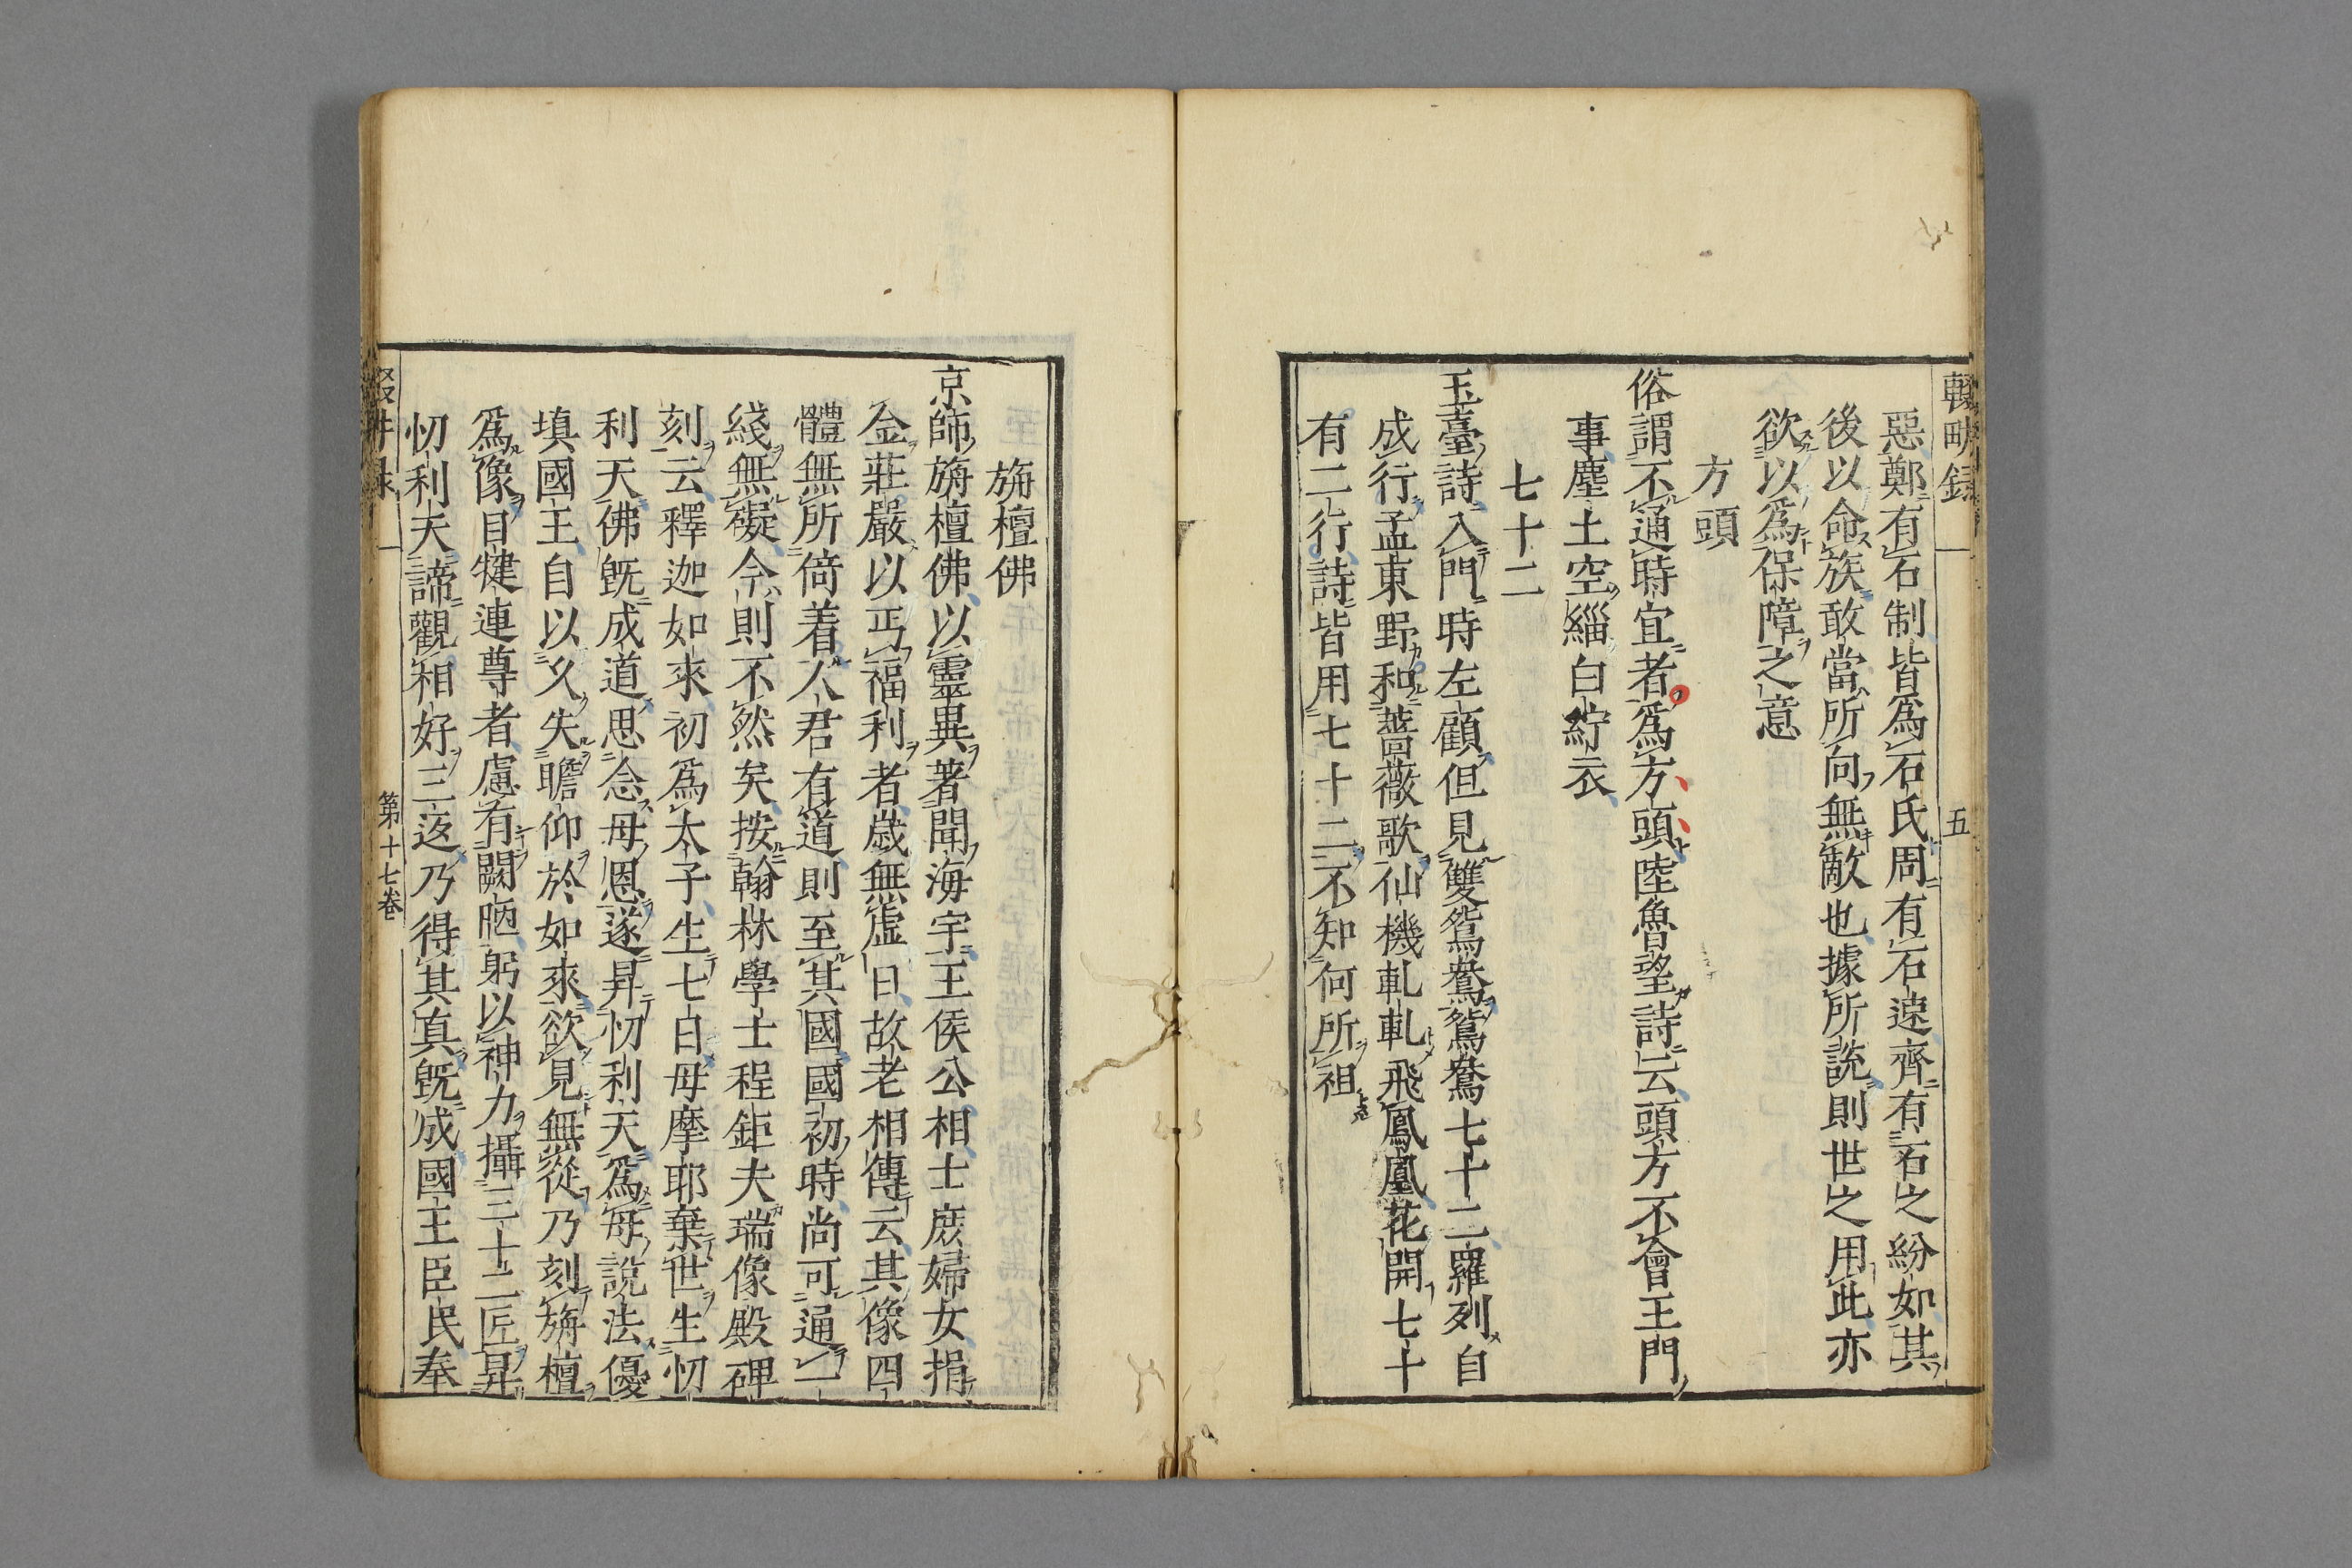 輟畊録
五
惡鄭有石制皆爲石氏周有石速齊有石之紛如其
後以命族敢當所向無敵也據所説則世之用此亦
欲以爲保障之意
方頭
俗謂不通時宜者爲方頭陸魯望詩云頭方不會王門
事塵土空緇白紵衣
七十二
玉臺詩入門時左顧但見雙鴛鴦鴛鴦七十二羅列自
成行孟東野和薔薇歌仙機軋軋飛鳳凰花開七十
有二行詩皆用七十二不知何所祖
旃檀佛
京師旃檀佛以靈異著聞海宇王侯公相士庻婦女捐
金莊嚴以丐福利者歲無虛日故老相傳云其像四
體無所倚着人君有道則至其國國初時尚可通一
綫無礙今則不然矣按翰林學士程鉅夫瑞像殿碑
刻云釋迦如來初爲太子生七日母摩耶棄世生忉
利天佛旣成道思念母恩遂昇忉利天爲母説法優
填國王自以久失瞻仰於如來欲見無從乃刻旃檀
爲像目犍連尊者慮有闕陋躬以神力攝三十二匠昇
忉利天諦觀相好三返乃得其真旣成國王臣民奉
第十七卷